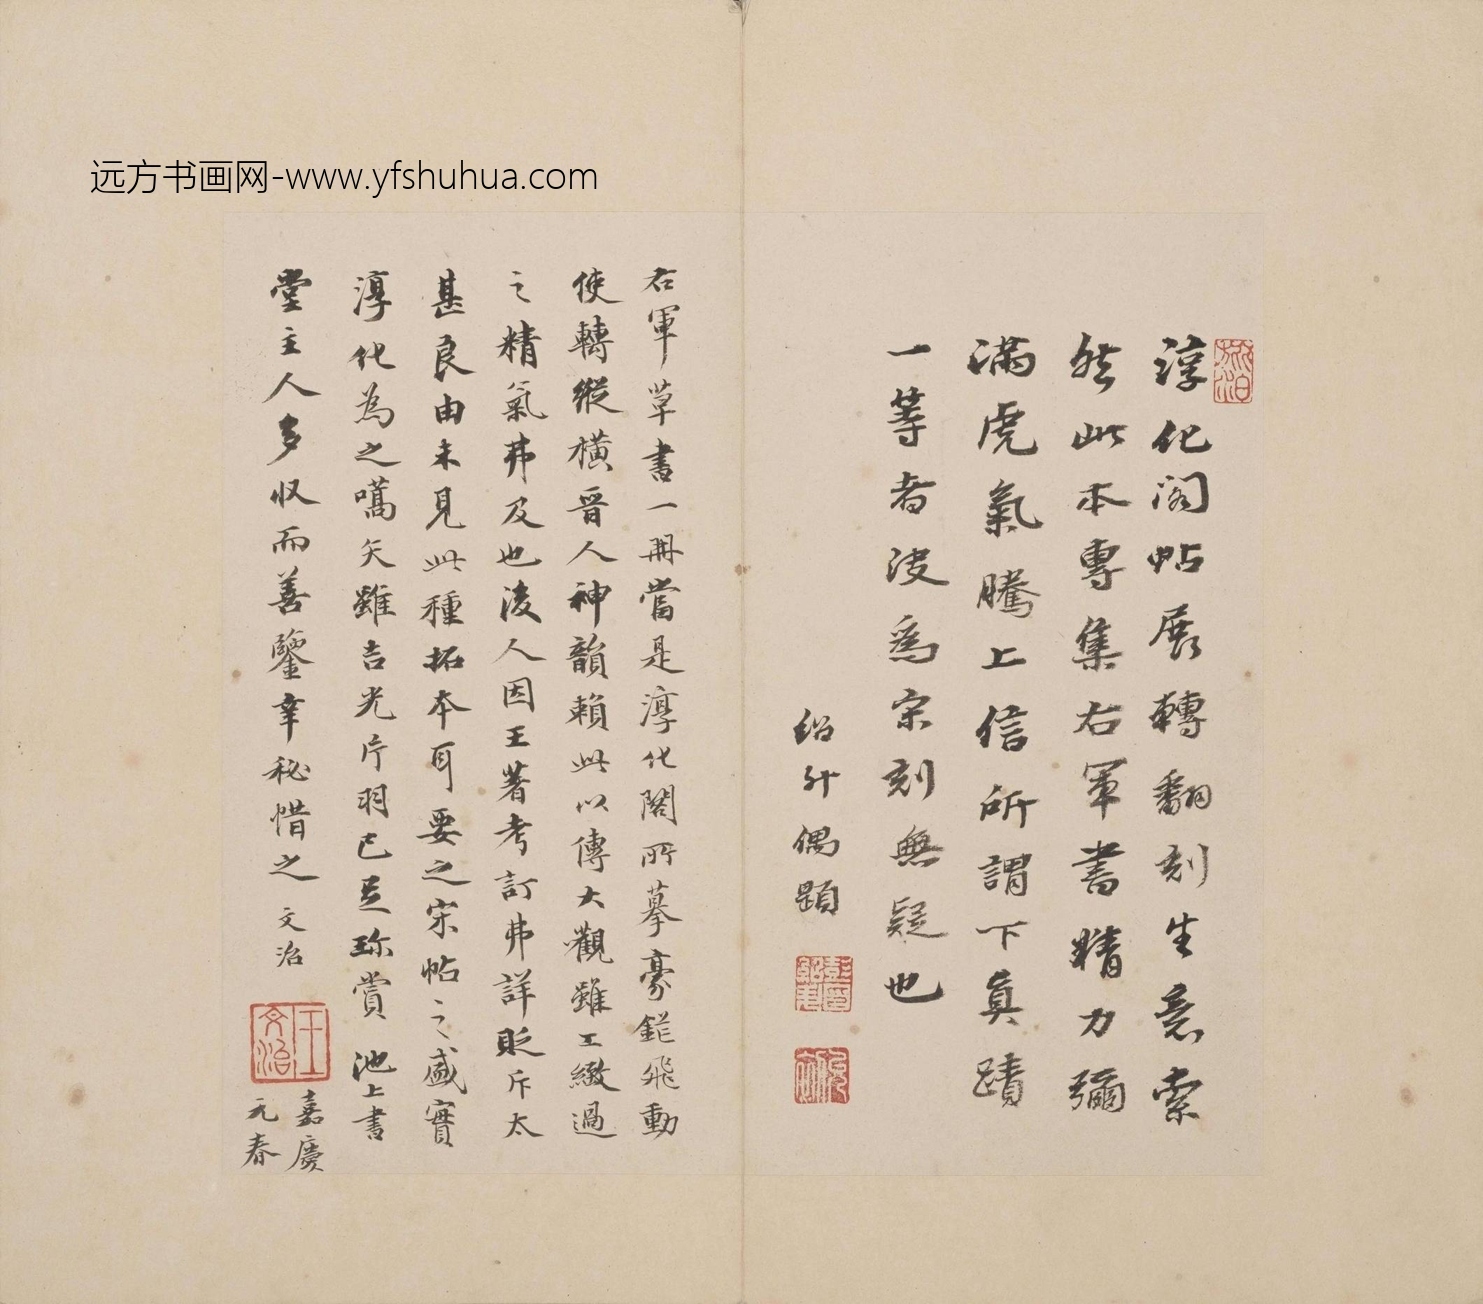 远方书画网-www.yfshuhua.com
淳化阁帖展轉翻刻生意索
然此本專集右軍書精力彌
滿虎氣騰上信所謂下真蹟
一等者没為宋刻無疑也
紹升偶題
右軍草書一冊當是淳化閣所摹豪鋩飛動
使轉縱橫晉人神韻賴此以傳大觀雖工緻過
之精氣弗及也後人因王著考訂弗詳貶斥太
甚良由未見此種拓本耳要之宋帖之盛實
淳化為之嚆矢雖吉光片羽已足珎賞 池上書
堂主人多收而善鑒幸秘惜之 文治
王文治
嘉慶
元春